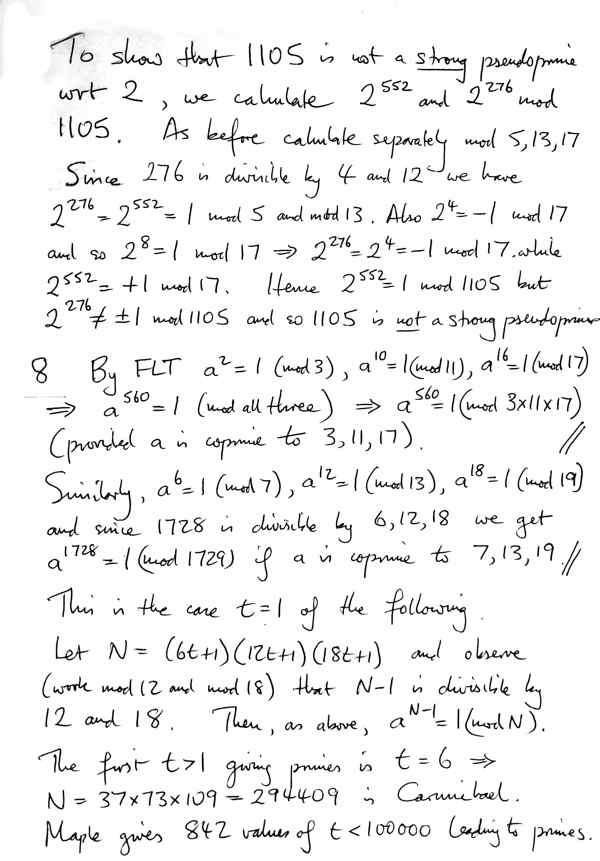 To show that 1105 is not a strong pseudoprime
wrt 2, we calculate 2^552 and 2^276 mod
1105. As before calculate separately mod 5,13,17
Since 276 is divisible by 4 and 12 we have
2^276 = 2^552 = 1 mod 5 and mod 13. Also 2^4 = -1 mod 17
and so 2^8 = 1 mod 17 ⇒ 2^276 = 2^4 = -1 mod 17. while
2^552 = +1 mod 17. Hence 2^552 = 1 mod 1105 but
2^276 ≠ ±1 mod 1105 and so 1105 is not a strong pseudoprime
8 By FLT a^2 = 1 (mod 3), a^10 = 1 (mod 11), a^16 = 1 (mod 17)
⇒ a^560 = 1 (mod all three) ⇒ a^560 = 1 (mod 3×11×17)
(provided a is coprime to 3,11,17). //
Similarly, a^6 = 1 (mod 7), a^12 = 1 (mod 13), a^18 = 1 (mod 19)
and since 1728 is divisible by 6,12,18 we get
a^1728 = 1 (mod 1729) if a is coprime to 7,13,19. //
This is the case t=1 of the following.
Let N = (6t+1)(12t+1)(18t+1) and observe
(work mod 12 and mod 18) that N-1 is divisible by
12 and 18. Then, as above, a^N-1 = 1 (mod N).
The first t>1 giving primes is t = 6 ⇒
N = 37×73×109 = 294409 is Carmichael.
Maple gives 842 values of t < 100000 leading to primes.